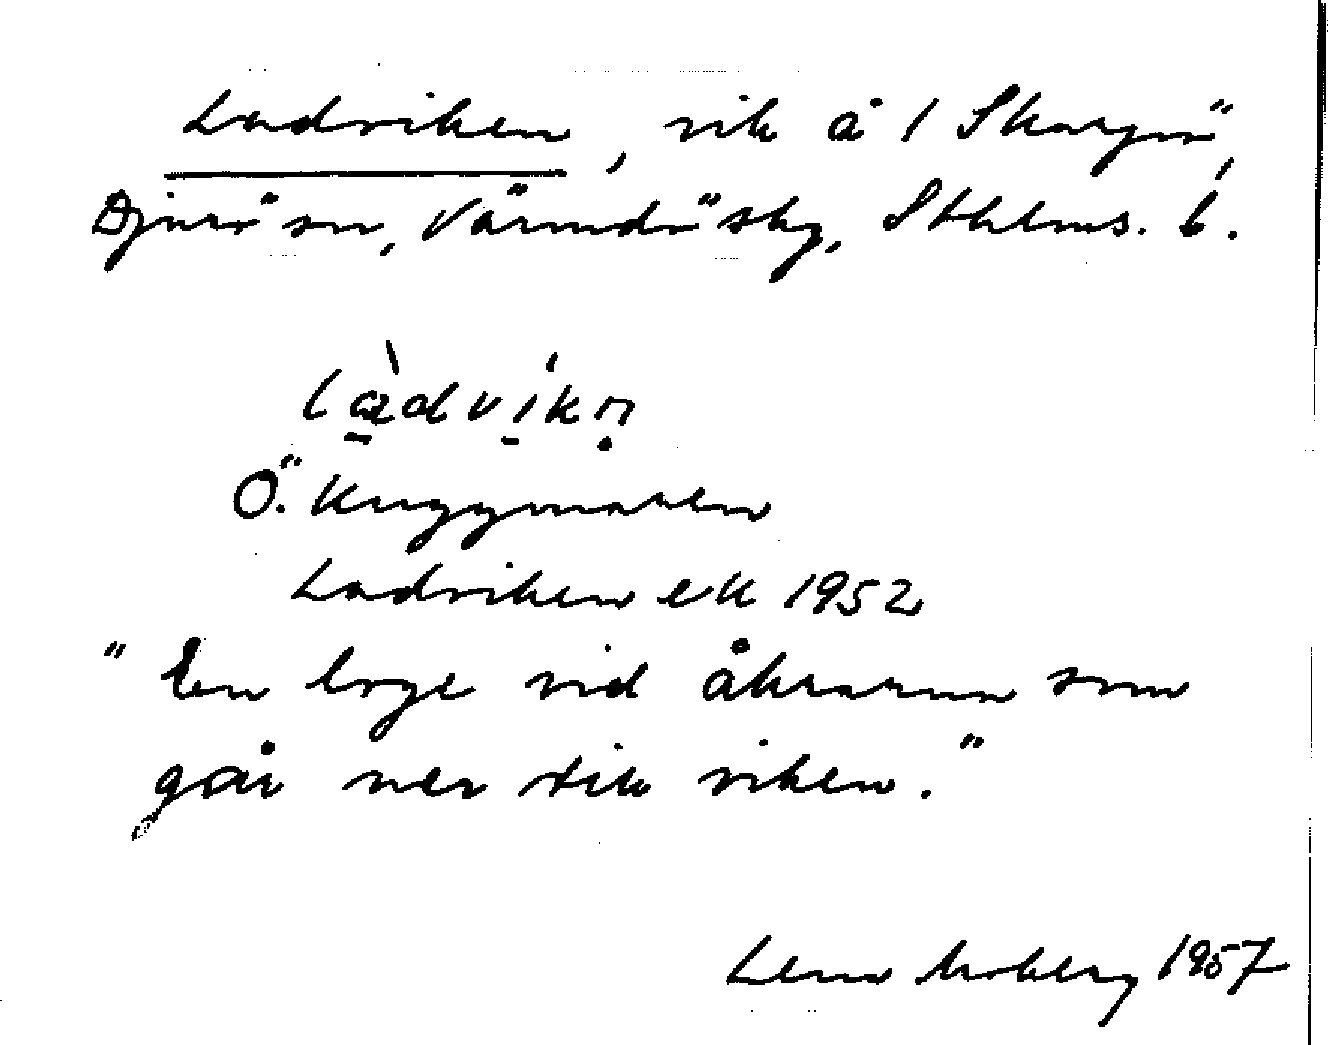 Ladviken, vik å 1 Skarpö,
Djurö sn, Värmdö skg, Sthlms. l.
làdvíkn̥
Ö. Kuggmaren
Ladviken ek 1952
"En loge vid åkrarna som
går ner till viken."
Lena Moberg 1957